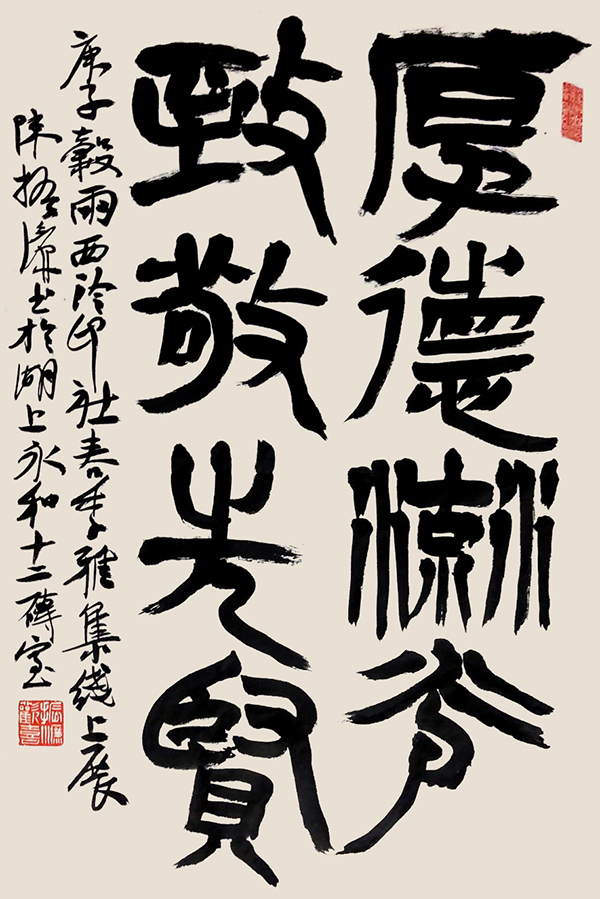 厚德流芳
致敬先賢
庚子穀雨西泠印社春季雅集綫上展
陳振濂书於湖上永和十二磚室